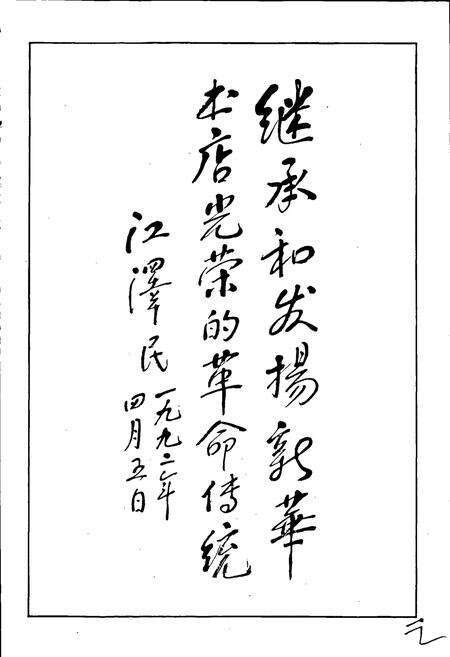 继承和发揚新華
书店光荣的革命传统
江澤民
一九九二年
四月五日